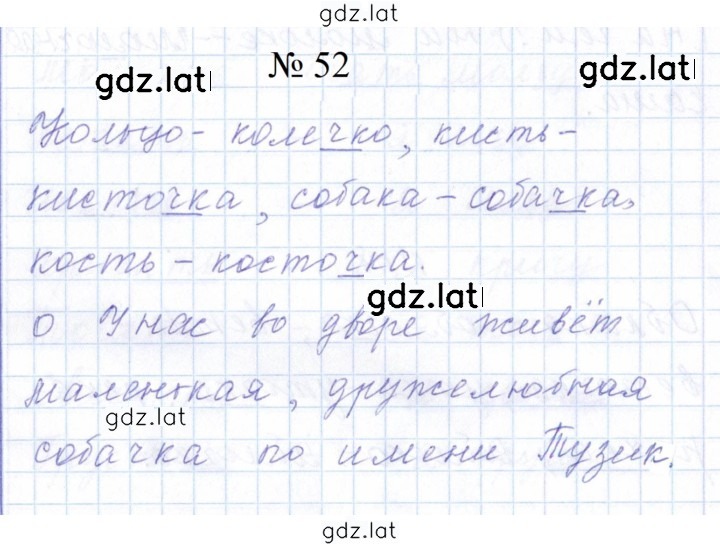 gdz.lat
№ 52
gdz.lat
gdz.lat
Кольцо - колечко, кисть -
кисточка, собака - собачка,
кость - косточка.
gdz.lat
о У нас во дворе живёт
маленькая, дружелюбная
gdz.lat
собачка по имени Тузик.
gdz.lat